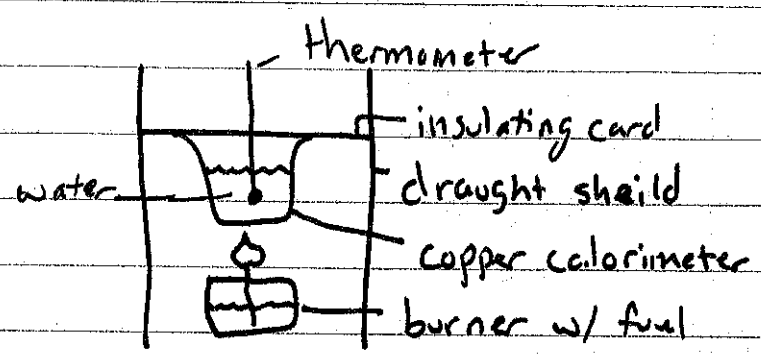 thermometer
insulating card
water
draught sheild
copper calorimeter
burner w/ fuel